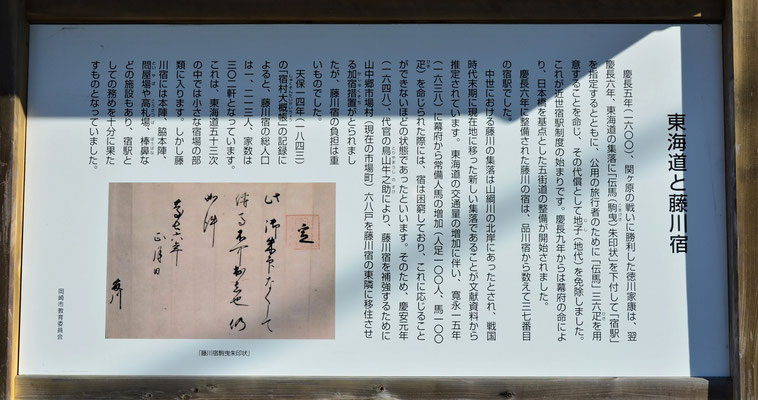 東海道と藤川宿
慶長五年(一六〇〇)、関ヶ原の戦いに勝利した徳川家康は、翌
慶長六年、東海道の集落に「伝馬(駒曳)朱印状」を下付して「宿駅」
を指定するとともに、公用の旅行者のために「伝馬」三六疋を用
意することを命じ、その代償として地子(地代)を免除しました。
これが近世宿駅制度の始まりです。慶長九年からは幕府の命によ
り、日本橋を基点とした五街道の整備が開始されました。
慶長六年に整備された藤川の宿は、品川宿から数えて三七番目
の宿駅でした。
中世における藤川の集落は山綱川の北岸にあったとされ、戦国
時代末期に現在地に移った新しい集落であることが文献資料から
推定されています。東海道の交通量の増加に伴い、寛永一五年
(一六三八)に幕府から常備人馬の増加(人足一〇〇人、馬一〇〇
疋)を命じられた際には、宿は困窮しており、これに応じること
ができないほどの状態であったといいます。そのため、慶安元年
(一六四八)、代官の鳥山牛之助により、藤川宿を補強するために
山中郷市場村(現在の市場町)六八戸を藤川宿の東隣に移住させ
る加宿措置がとられまし
たが、藤川宿の負担は重
いものでした。
天保一四年(一八四三)
の『宿村大概帳』の記録に
よると、藤川宿の総人口
は一、二一三人、家数は
三〇二軒となっています。
これは、東海道五十三次
の中では小さな宿場の部
類に入ります。しかし藤
川宿には本陣、脇本陣、
問屋場や高札場、棒鼻な
どの施設もあり、宿駅と
しての務めを十分に果た
すものとなっていました。
定
此御朱印なくして
伝馬不可出者也仍
如件
慶長六年
正月日
藤川
「藤川宿駒曳朱印状」
岡崎市教育委員会